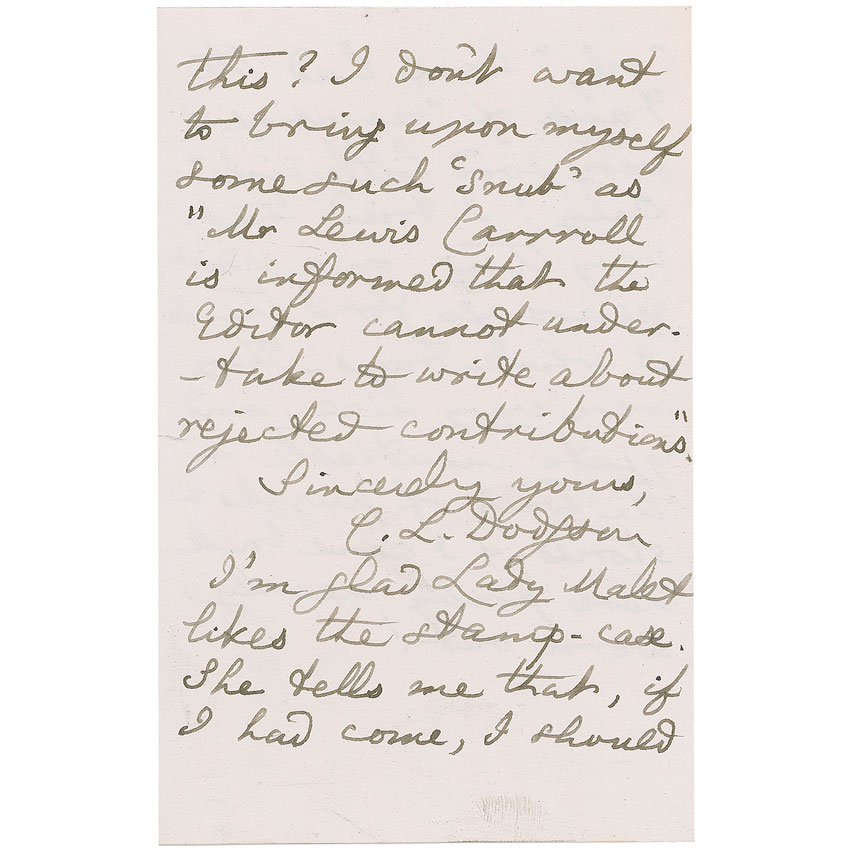 this? I don't want
to bring upon myself
some such 'snub' as
"Mr Lewis Carrroll
is informed that the
Editor cannot under-
-take to write about
rejected contributions".
Sincerely yours,
C. L. Dodgson
I'm glad Lady Malet
likes the stamp-case.
She tells me that, if
I had come, I should